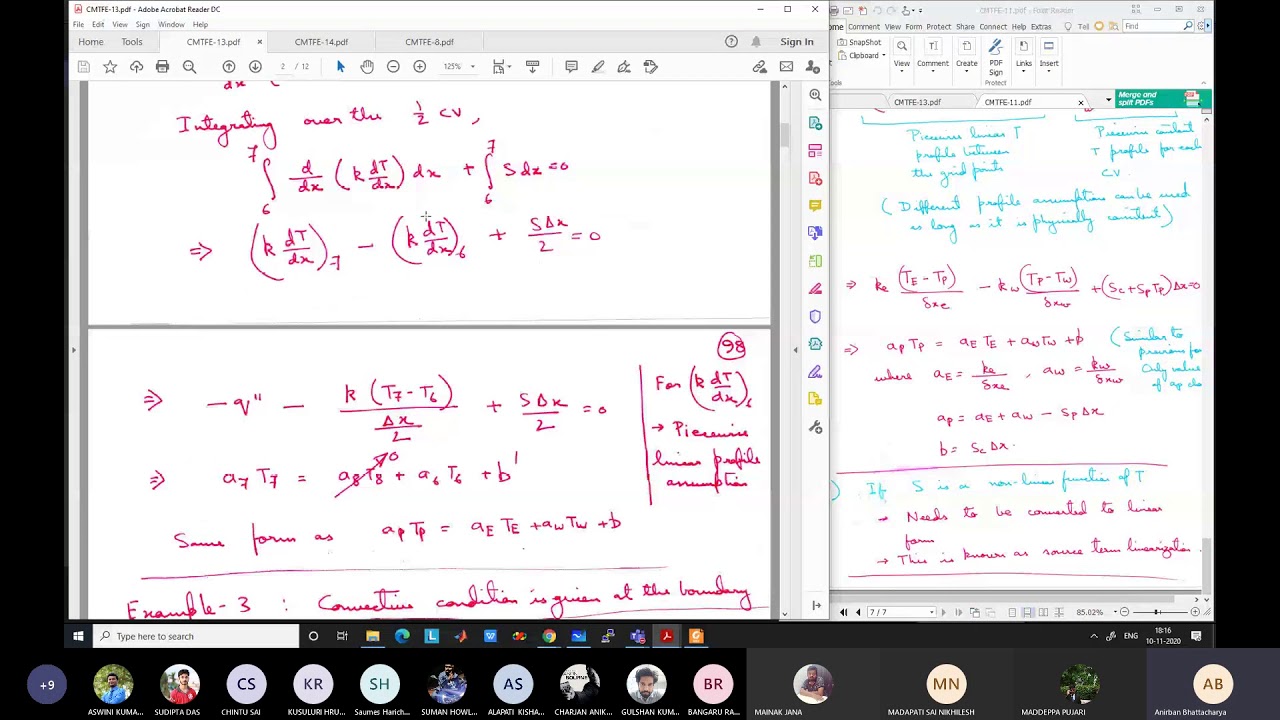 CMTFE-13.pdf - Adobe Acrobat Reader DC
File Edit View Sign Window Help
Home Tools CMTFE-13.pdf × CMTFE-14.pdf CMTFE-8.pdf Sign In
2 / 12 125%
dx
Integrating over the 1/2 CV,
∫₆⁷ d/dx (k dT/dx) dx + ∫₆⁷ S dx = 0
⇒ (k dT/dx)₇ - (k dT/dx)₆ + SΔx/2 = 0
98
⇒ -q'' - k (T₇ - T₆)/(Δx/2) + SΔx/2 = 0
⇒ a₇ T₇ = a₈T₈ + a₆ T₆ + b'
0
Same form as aₚTₚ = a_E T_E + a_W T_W + b
For (k dT/dx)₆
→ Piecewise
linear profile
assumption
Example-3 : Convective condition is given at the boundary
CMTFE-11.pdf - Foxit Reader
Comment View Form Protect Share Connect Help Extras Tell Find
SnapShot
Clipboard
View Comment Create PDF Sign Links Insert
Tools Protect
CMTFE-13.pdf CMTFE-11.pdf ×
Merge and
split PDFs
Piecewise linear T
profile between
the grid points
Piecewise constant
T profile for each
CV
( Different profile assumptions can be used
as long as it is physically consistent )
⇒ kₑ (T_E - T_P)/δxₑ - k_w (T_P - T_W)/δx_w + (S_C + S_P T_P) Δx = 0
⇒ a_P T_P = a_E T_E + a_W T_W + b
(Similar to
previous fo
Only value
of a_P
where a_E = kₑ/δxₑ , a_W = k_w/δx_w
a_P = a_E + a_W - S_P Δx
b = S_C Δx.
) If S is a non-linear function of T
→ Needs to be converted to linear
form
→ This is known as source term linearization
7 / 7 85.02%
Type here to search
ENG
18:16
10-11-2020
+9 CS KR SH AS BR MN AB
ASWINI KUMA...
SUDIPTA DAS
CHINTU SAI
KUSULURI HRU...
Saumes Harich...
SUMAN HOWL...
ALAPATI KISHA...
CHARJAN ANIK...
GULSHAN KUM...
BANGARU RA...
MAINAK JANA
MADAPATI SAI NIKHILESH
MADDEPPA PUJARI
Anirban Bhattacharya